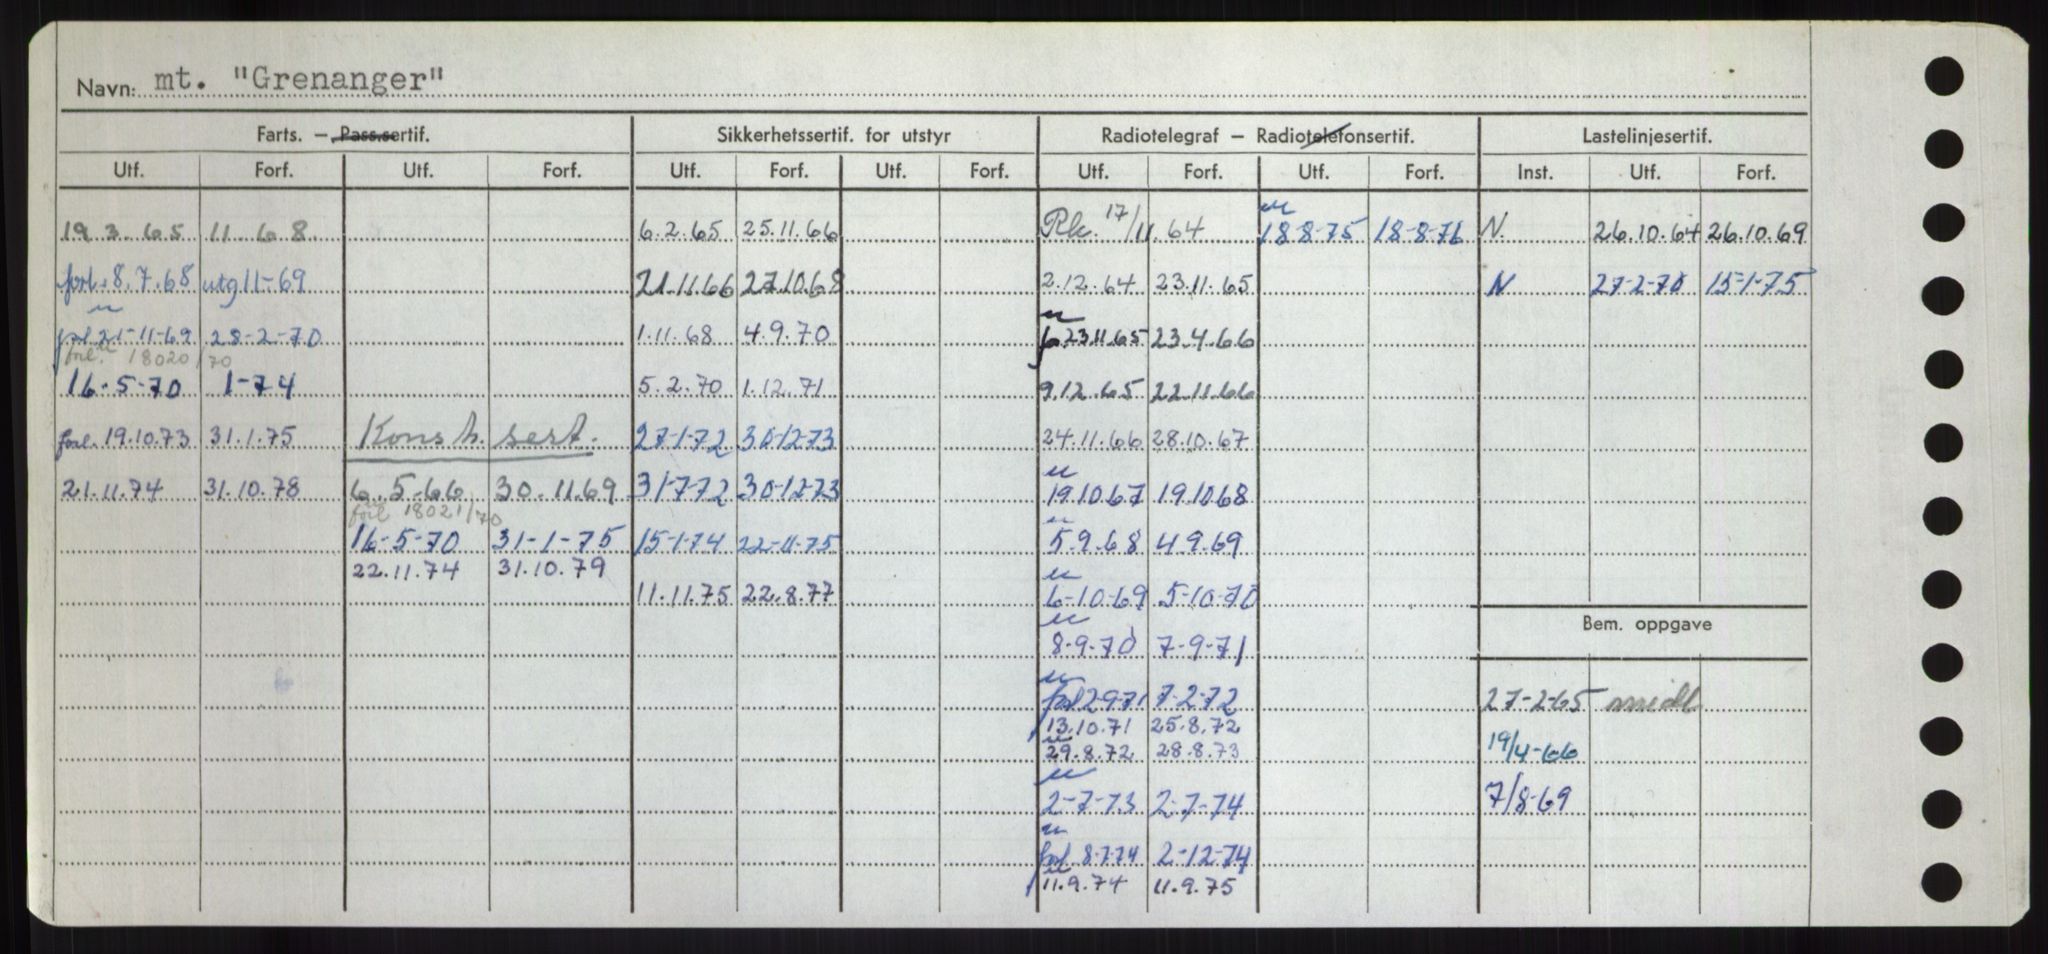 Navn: mt. "Grenanger"
Farts. — Pass.sertif. Sikkerhetssertif. for utstyr Radiotelegraf — Radiotelefonsertif. Lastelinjesertif.
Utf. Forf. Utf. Forf. Utf. Forf. Utf. Forf. Utf. Forf. Utf. Forf. Inst. Utf. Forf.
19.3.65 11.68. 6.2.65 25.11.66 Rk. 17/11.64 18-8-75 18-8-76 N. 26.10.64 26.10.69
forl. 8.7.68 utg 11-69 21.11.66 27.10.68 2.12.64 23.11.65 N 27-2-70 15-1-75
forl 21-11-69 28-2-70 1.11.68 4.9.70 f. 23.11.65 23.4.66
forl. 18020/70
16-5-70 1-74 5.2.70 1.12.71 9.12.65 22.11.66
forl. 19.10.73 31.1.75 Konstr. sert. 27-1-72 30-12-73 24.11.66 28.10.67
21.11.74 31.10.78 6.5.66 30.11.69 31-7-72 30-12-73 19.10.67 19.10.68
forl 18021/70
16-5-70 31-1-75 15-1-74 22-11-75 5.9.68 4.9.69
22.11.74 31.10.79
11.11.75 22.8.77 6-10-69 5-10-70
Bem. oppgave
8-9-70 7-9-71
forl 2-9-71 7-2-72 27-2-65 midl
13.10.71 25.8.72
29.8.72 28.8.73 19/4-66
2-7-73 2-7-74 7/8-69
forl 8-7-74 2-12-74
11.9.74 11.9.75